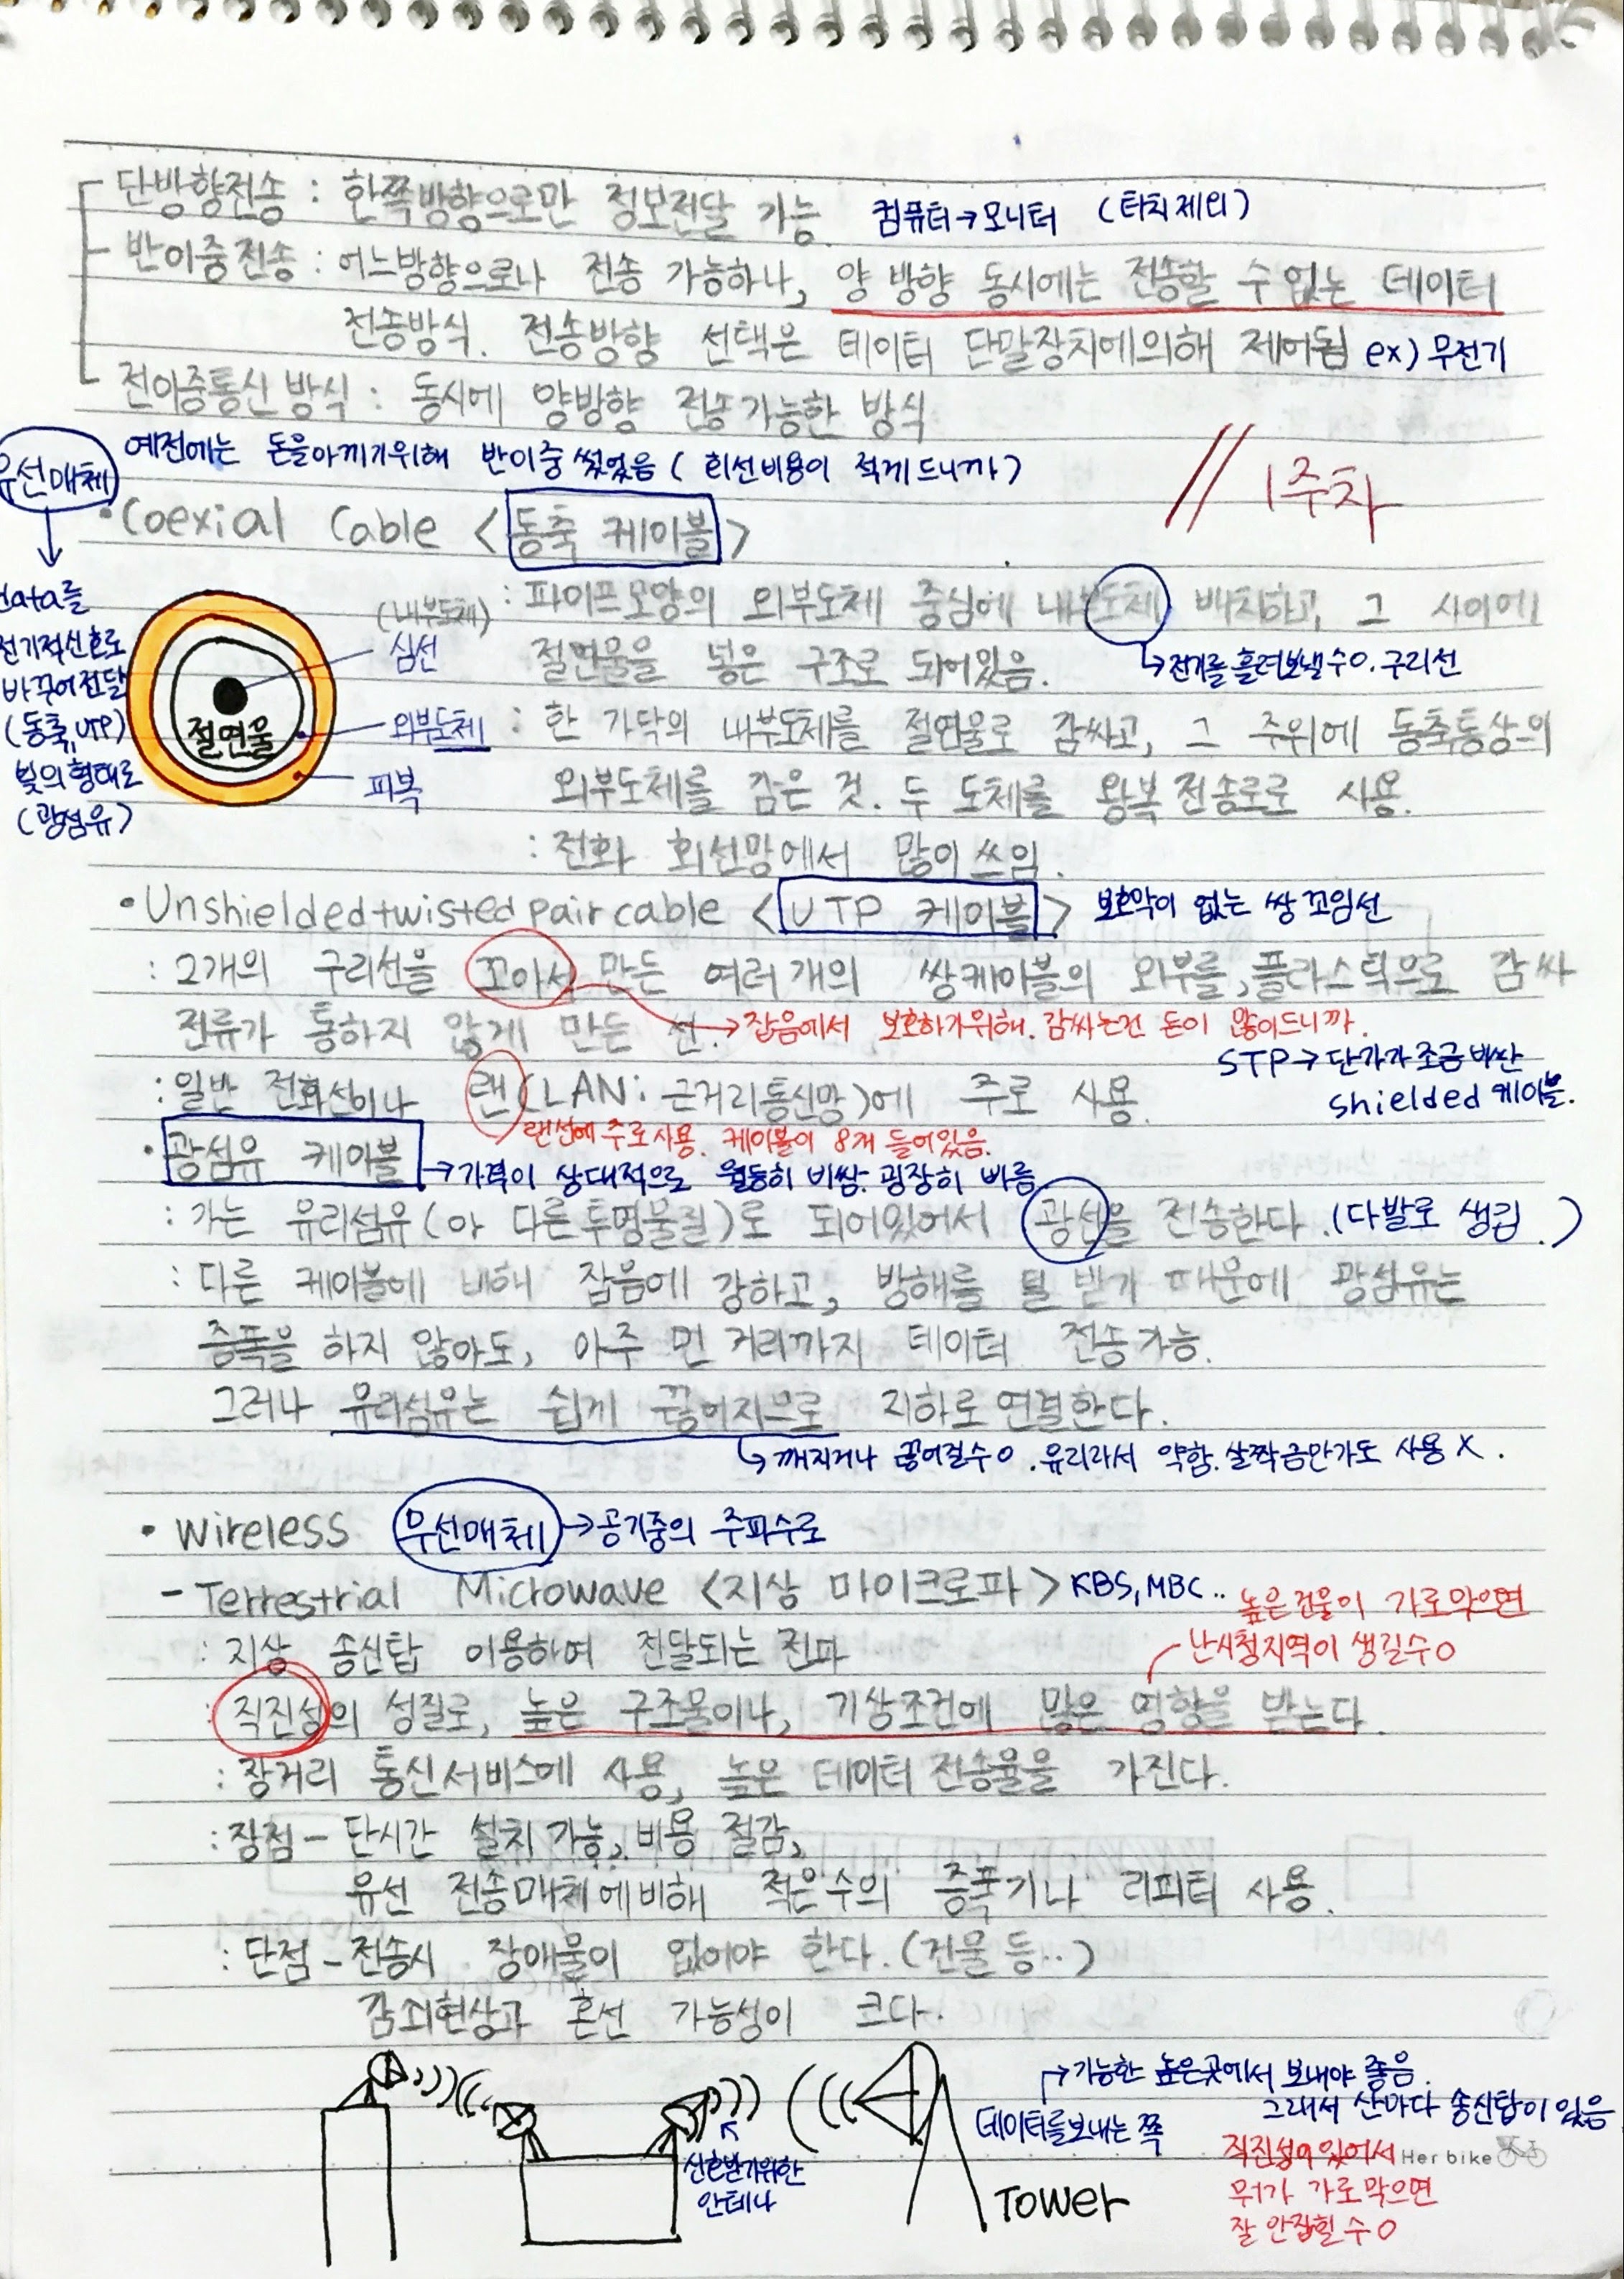 단방향전송 : 한쪽방향으로만 정보전달 가능. 컴퓨터→모니터 (터치제외)
반이중전송 : 어느방향으로나 전송 가능하나, 양 방향 동시에는 전송할 수 없는 데이터
전송방식. 전송방향 선택은 데이터 단말장치에의해 제어됨 ex) 무전기
전이중통신 방식 : 동시에 양방향 전송가능한 방식
예전에는 돈을아끼기위해 반이중 썼었음 ( 회선비용이 적게드니까)
// 1주차
유선매체
•Coexial Cable <동축 케이블>
data를
전기적신호로
바꾸어전달
(동축, UTP)
빛의형태로
(광섬유)
(내부도체)
심선
절연물
외부도체
피복
: 파이프모양의 외부도체 중심에 내부도체 배치하고, 그 사이에
절연물을 넣은 구조로 되어있음.
↳전기를 흘려보낼수O. 구리선
: 한 가닥의 내부도체를 절연물로 감싸고, 그 주위에 동축통상의
외부도체를 감은 것. 두 도체를 왕복 전송로로 사용.
: 전화 회선망에서 많이 쓰임.
•Unshielded twisted pair cable <UTP 케이블> 보호막이 없는 쌍 꼬임선
: 2개의 구리선을 꼬아서 만든 여러개의 쌍케이블의 외부를, 플라스틱으로 감싸
전류가 통하지 않게 만든 선. →잡음에서 보호하기위해. 감싸는건 돈이 많이드니까.
STP→단가가 조금 비싼
shielded 케이블.
: 일반 전화선이나 랜(LAN: 근거리통신망)에 주로 사용.
랜선에 주로사용. 케이블이 8개 들어있음.
•광섬유 케이블 →가격이 상대적으로 월등히 비쌈. 굉장히 빠름
: 가는 유리섬유(아 다른투명물질)로 되어있어서 광선을 전송한다. (다발로 생김.)
: 다른 케이블에 비해 잡음에 강하고, 방해를 덜 받기 때문에 광섬유는
증폭을 하지 않아도, 아주 먼 거리까지 데이터 전송가능.
그러나 유리섬유는 쉽게 끊어지므로 지하로연결한다.
↳깨지거나 끊어질수O. 유리라서 약함. 살짝금만가도 사용X.
• Wireless 무선매체→공기중의 주파수로
- Terrestrial Microwave <지상 마이크로파> KBS, MBC..
높은건물이 가로막으면
난시청지역이 생길수O
: 지상 송신탑 이용하여 전달되는 전파
: 직진성의 성질로, 높은 구조물이나, 기상조건에 많은 영향을 받는다.
: 장거리 통신서비스에 사용, 높은 데이터 전송율을 가진다.
: 장점 - 단시간 설치 가능, 비용 절감,
유선 전송매체에비해 적은수의 증폭기나 리피터 사용.
: 단점 - 전송시 장애물이 없어야 한다. (건물 등..)
감쇠현상과 혼선 가능성이 크다.
→가능한 높은곳에서 보내야 좋음.
그래서 산마다 송신탑이 있음
데이터를보내는 쪽
신호받기위한
안테나
TOWER
직진성이있어서
뭐가 가로막으면
잘 안잡힐수O
Her bike